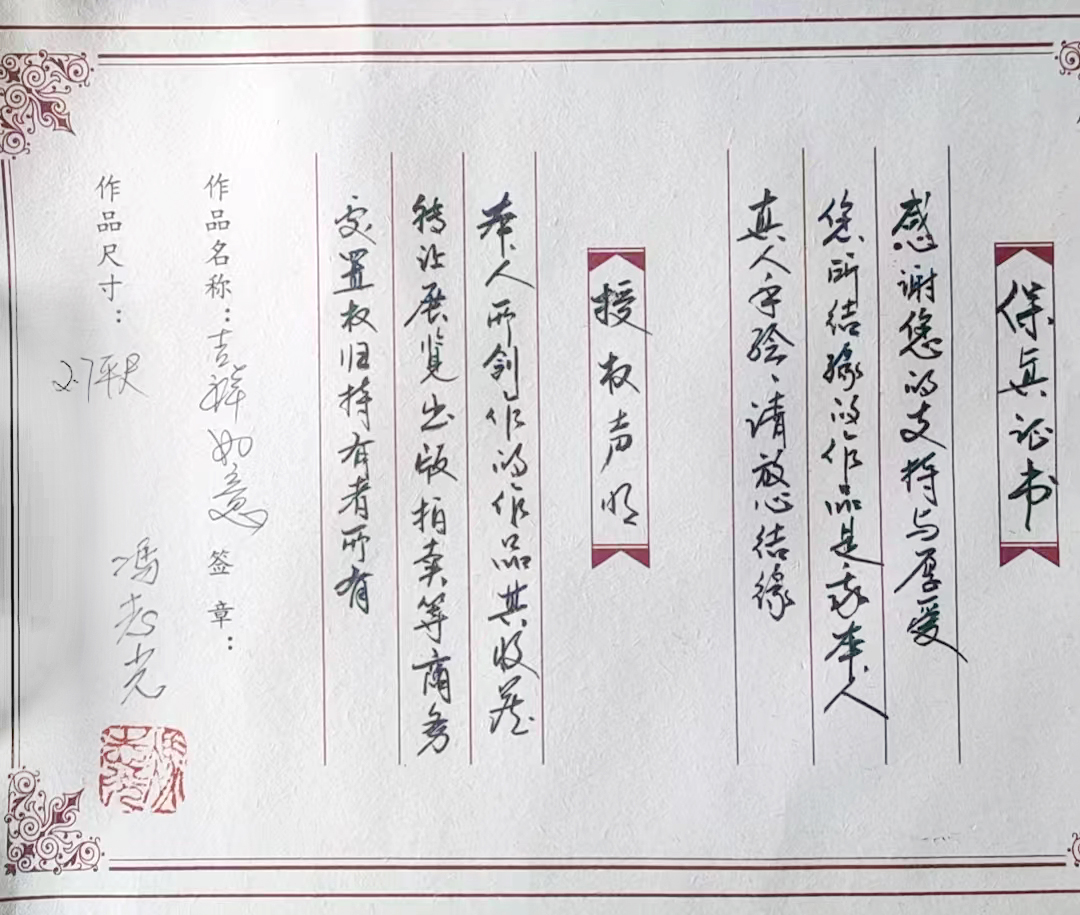 保真证书
感谢您的支持与厚爱
您所结缘的作品是我本人
真人手绘、请放心结缘
授权声明
本人所创作的作品其收藏
转让展览出版拍卖等商务
处置权归持有者所有
作品名称：吉祥如意 签章：
作品尺寸：2.7平尺
冯志光
冯志光